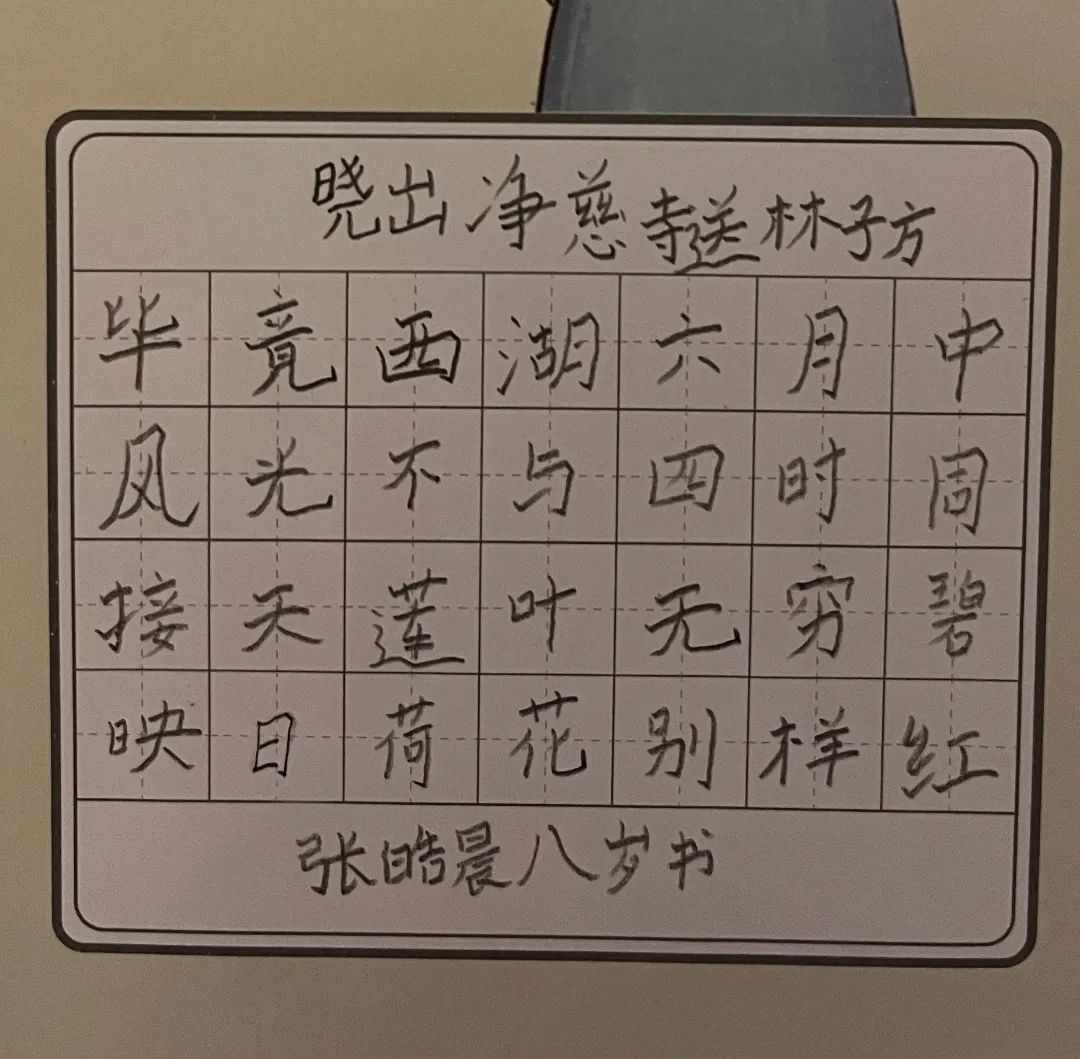 晓出净慈寺送林子方
毕竟西湖六月中
风光不与四时周
接天莲叶无穷碧
映日荷花别样红
张皓晨八岁书